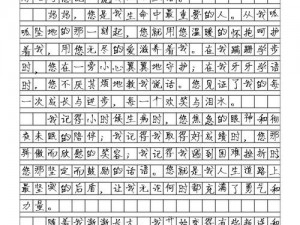 妈妈，您是我生命中最重要的人。从我呱
呱坠地的那一刻起，您就用您温暖的怀抱呵护
着我，用您无尽的爱滋养着我。在我蹒跚学步
时，您在一旁小心翼翼地守护；在我牙牙学语
时，您不厌其烦地教我说话。您见证了我的每
一次成长与进步，每一个欢笑与泪水。
我记得小时候生病时，您焦急的眼神和彻
夜未眠的陪伴；我记得我取得好成绩时，您那
骄傲而欣慰的笑容；我记得我遇到困难挫折时，
您那坚定而鼓励的话语。您就是我人生道路上
最坚实的后盾，让我无论何时都充满了勇气和
力量。
随着我渐渐长大，我开始变得有些叛逆和